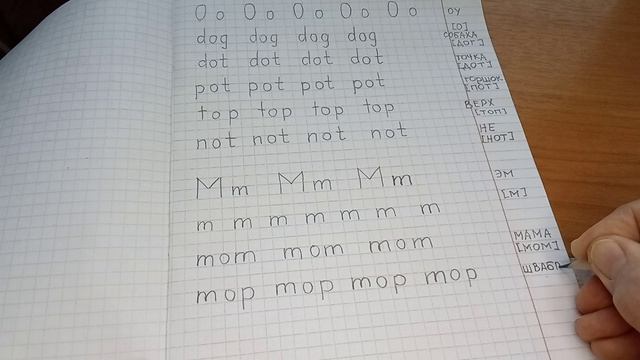 O o O o O o O o O o ОУ [О]
dog dog dog dog СОБАКА [ДОГ]
dot dot dot dot ТОЧКА [ДОТ]
pot pot pot pot ГОРШОК [ПОТ]
top top top top ВЕРХ [ТОП]
not not not not НЕ [НОТ]
M m M m M m ЭМ
m m m m m m m [М]
mom mom mom МАМА [МОМ]
mop mop mop mop ШВАБР